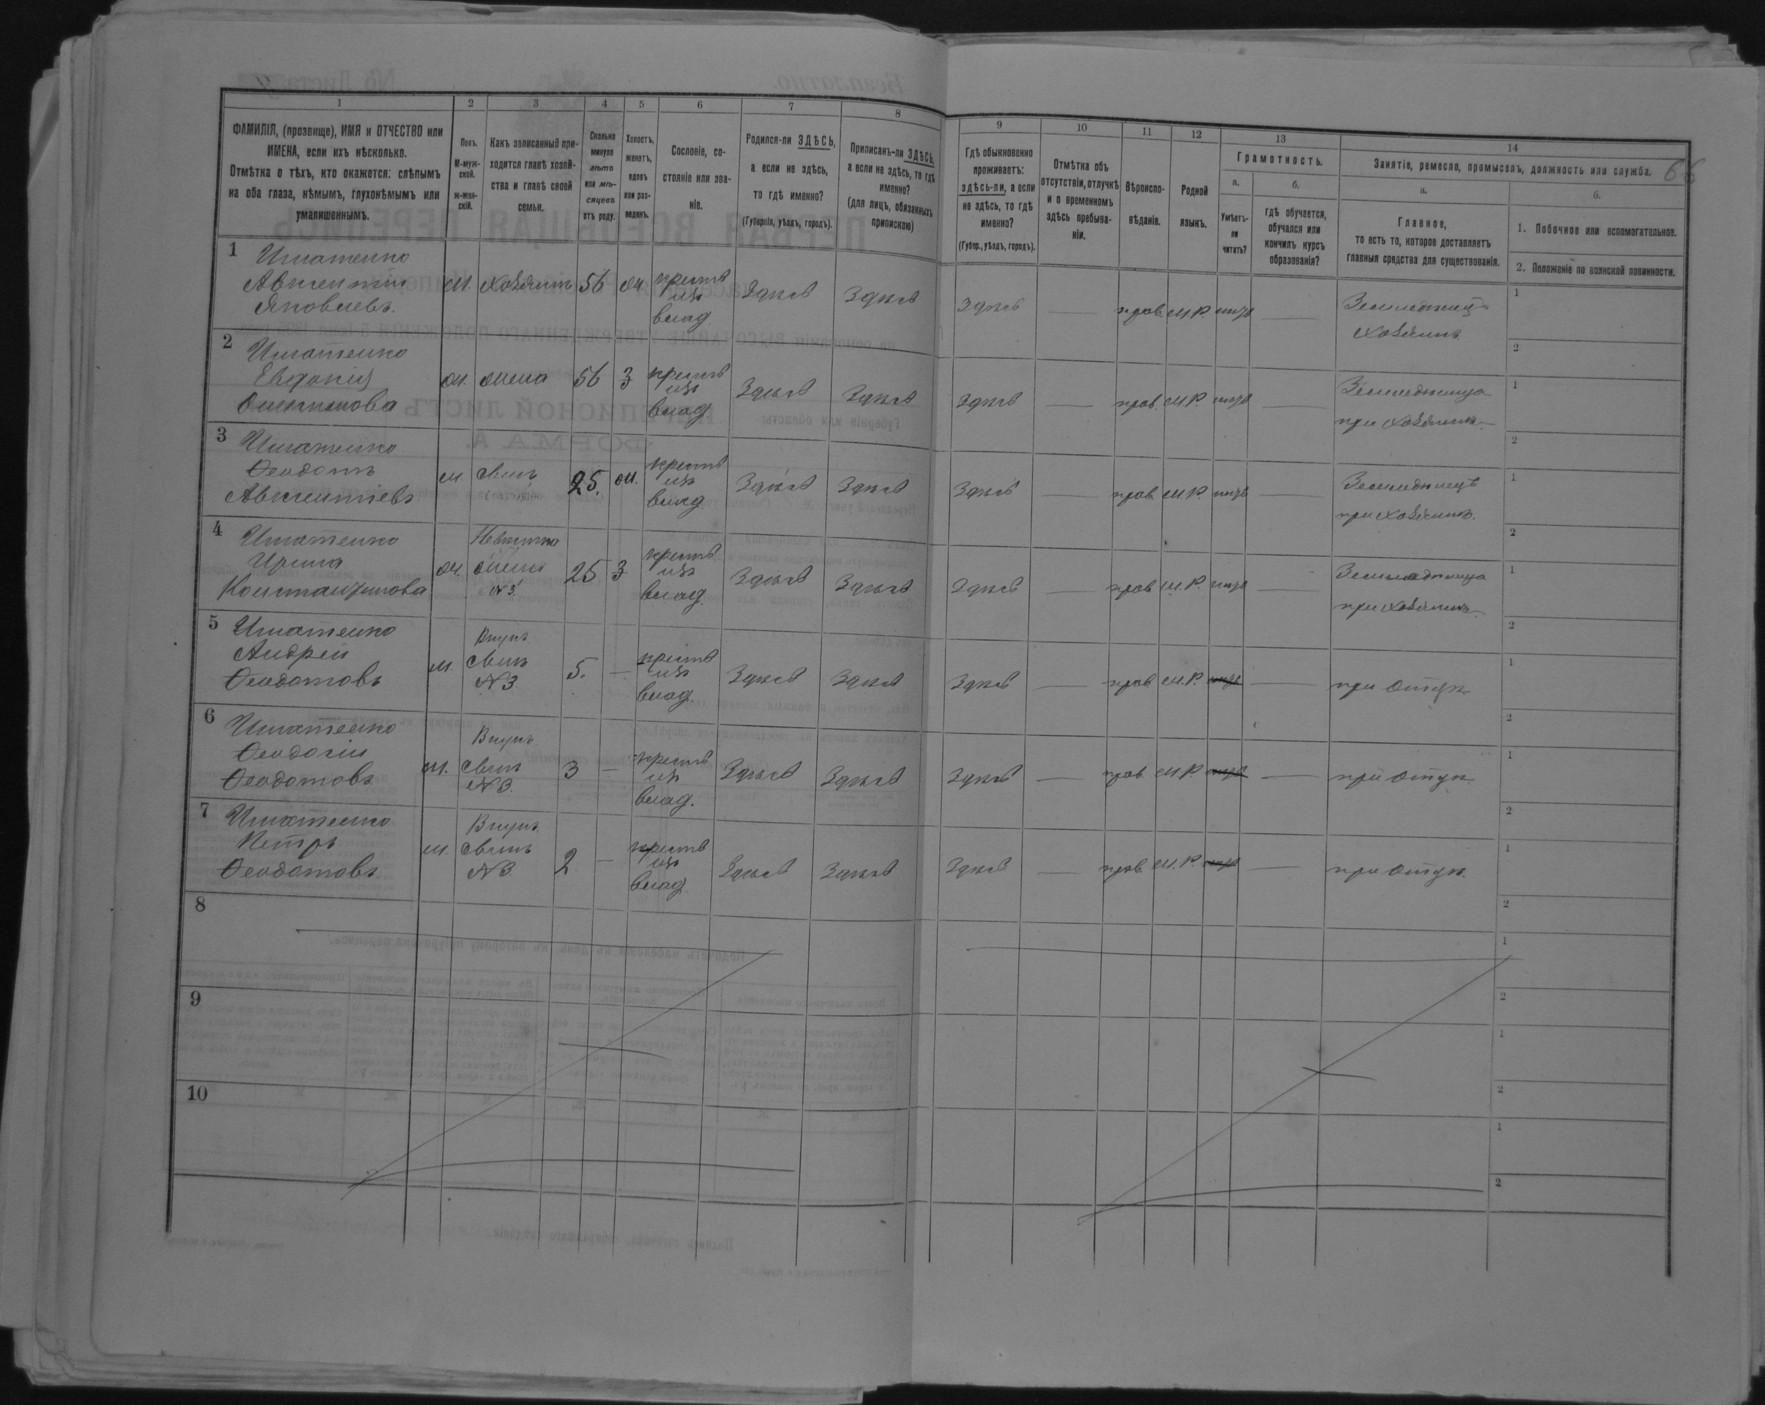 1 2 3 4 5 6 7 8
ФАМИЛІЯ, (прозвище), ИМЯ и ОТЧЕСТВО или
ИМЕНА, если ихъ нѣсколько.
Отмѣтка о тѣхъ, кто окажется: слѣпымъ
на оба глаза, нѣмымъ, глухонѣмымъ или
умалишеннымъ.
Полъ.
М-муж-
ской.
ж-жен-
скій.
Какъ записанный при-
ходится главѣ хозяй-
ства и главѣ своей
семьи.
Сколько
минуло
лѣтъ
или мѣ-
сяцевъ
отъ роду.
Холостъ,
женатъ,
вдовъ
или раз-
веденъ.
Сословіе, со-
стояніе или зва-
ніе.
Родился-ли ЗДѢСЬ,
а если не здѣсь,
то гдѣ именно?
(Губернія, уѣздъ, городъ).
Приписанъ-ли ЗДѢСЬ,
а если не здѣсь, то гдѣ
именно?
(для лицъ, обязанныхъ
припискою)
9 10 11 12 13 14
Гдѣ обыкновенно
проживаетъ:
здѣсь-ли, а если
не здѣсь, то гдѣ
именно?
(Губер., уѣздъ, городъ).
Отмѣтка объ
отсутствіи, отлучкѣ
и о временномъ
здѣсь пребыва-
ніи.
Вѣроиспо-
вѣданіе.
Родной
языкъ.
Грамотность.
а.
Умѣетъ-
ли
читать?
б.
гдѣ обучается,
обучался или
кончилъ курсъ
образованія?
Занятіе, ремесло, промыселъ, должность или служба.
66
а.
Главное,
то есть то, которое доставляетъ
главныя средства для существованія.
б.
1. Побочное или вспомогательное.
2. Положеніе по воинской повинности.
1 Игнатенко
Авксентій
Яковлевъ.
м. хозяинъ 56 ж.
крест
изъ
влад
здѣсь здѣсь здѣсь — прав м.р. —
Земледѣлец
хозяинъ
1
2
2 Игнатенко
Евдокія
ж. жена 56 З
крест
изъ
влад
здѣсь здѣсь здѣсь — прав. м.р. —
Земледѣлица
при хозяинѣ
1
2
3 Игнатенко
Феодотъ
Авксентіевъ
м сынъ 25. ж.
крест
изъ
влад
здѣсь здѣсь здѣсь — прав м.р. —
Земледѣлецъ
при хозяинѣ.
1
2
4 Игнатенко
Ирина
Константинова
ж. Невѣстка
жена
№3
25 З
крест
изъ
влад.
здѣсь здѣсь здѣсь — прав м.р. —
Земледѣлица
при хозяинѣ
1
2
5 Игнатенко
Андрей
Феодотовъ
м. Внукъ
сынъ
№3
5. —
крест
изъ
влад.
здѣсь здѣсь здѣсь — прав м.р. —
при отцѣ
1
2
6 Игнатенко
Феодотовъ
м. Внукъ
сынъ
№3
3 —
крест
изъ
влад.
здѣсь здѣсь здѣсь — прав м.р. —
при отцѣ
1
2
7 Игнатенко
Петръ
Феодотовъ
м. Внукъ
сынъ
№3
2 —
крест
изъ
влад
здѣсь здѣсь здѣсь — прав. м.р. —
при отцѣ.
1
2
8
1
2
9
1
2
10
1
2